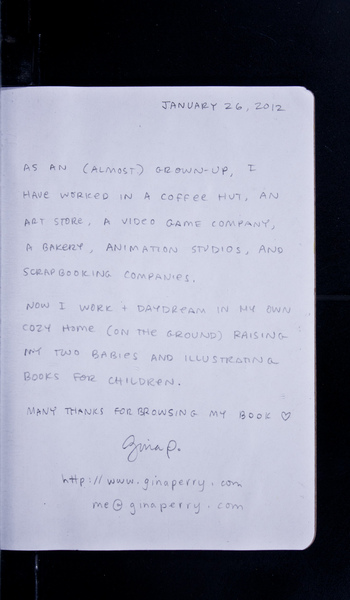 JANUARY 26, 2012
AS AN (ALMOST) GROWN-UP, I
HAVE WORKED IN A COFFEE HUT, AN
ART STORE, A VIDEO GAME COMPANY,
A BAKERY, ANIMATION STUDIOS, AND
SCRAPBOOKING COMPANIES.
NOW I WORK + DAYDREAM IN MY OWN
COZY HOME (ON THE GROUND) RAISING
MY TWO BABIES AND ILLUSTRATING
BOOKS FOR CHILDREN.
MANY THANKS FOR BROWSING MY BOOK ♡
Gina P.
http://www.ginaperry.com
me@ginaperry.com